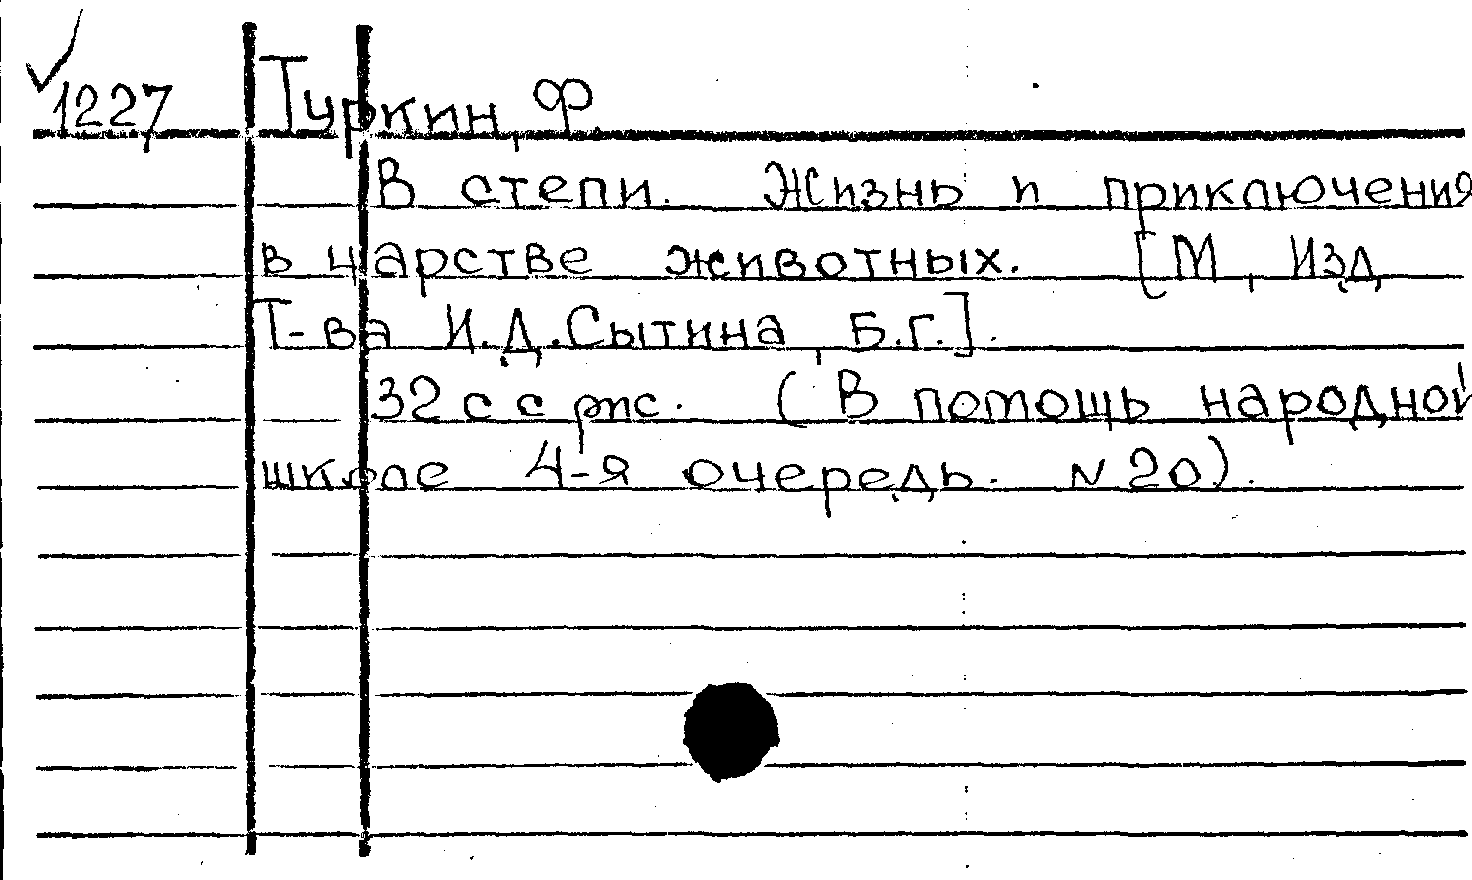 1227 Туркин, Ф.
В степи. Жизнь и приключения
в царстве животных. [М, Изд
Т-ва И.Д.Сытина, Б.г.].
32 с с рис. (В помощь народной
школе 4-я очередь. N 20).